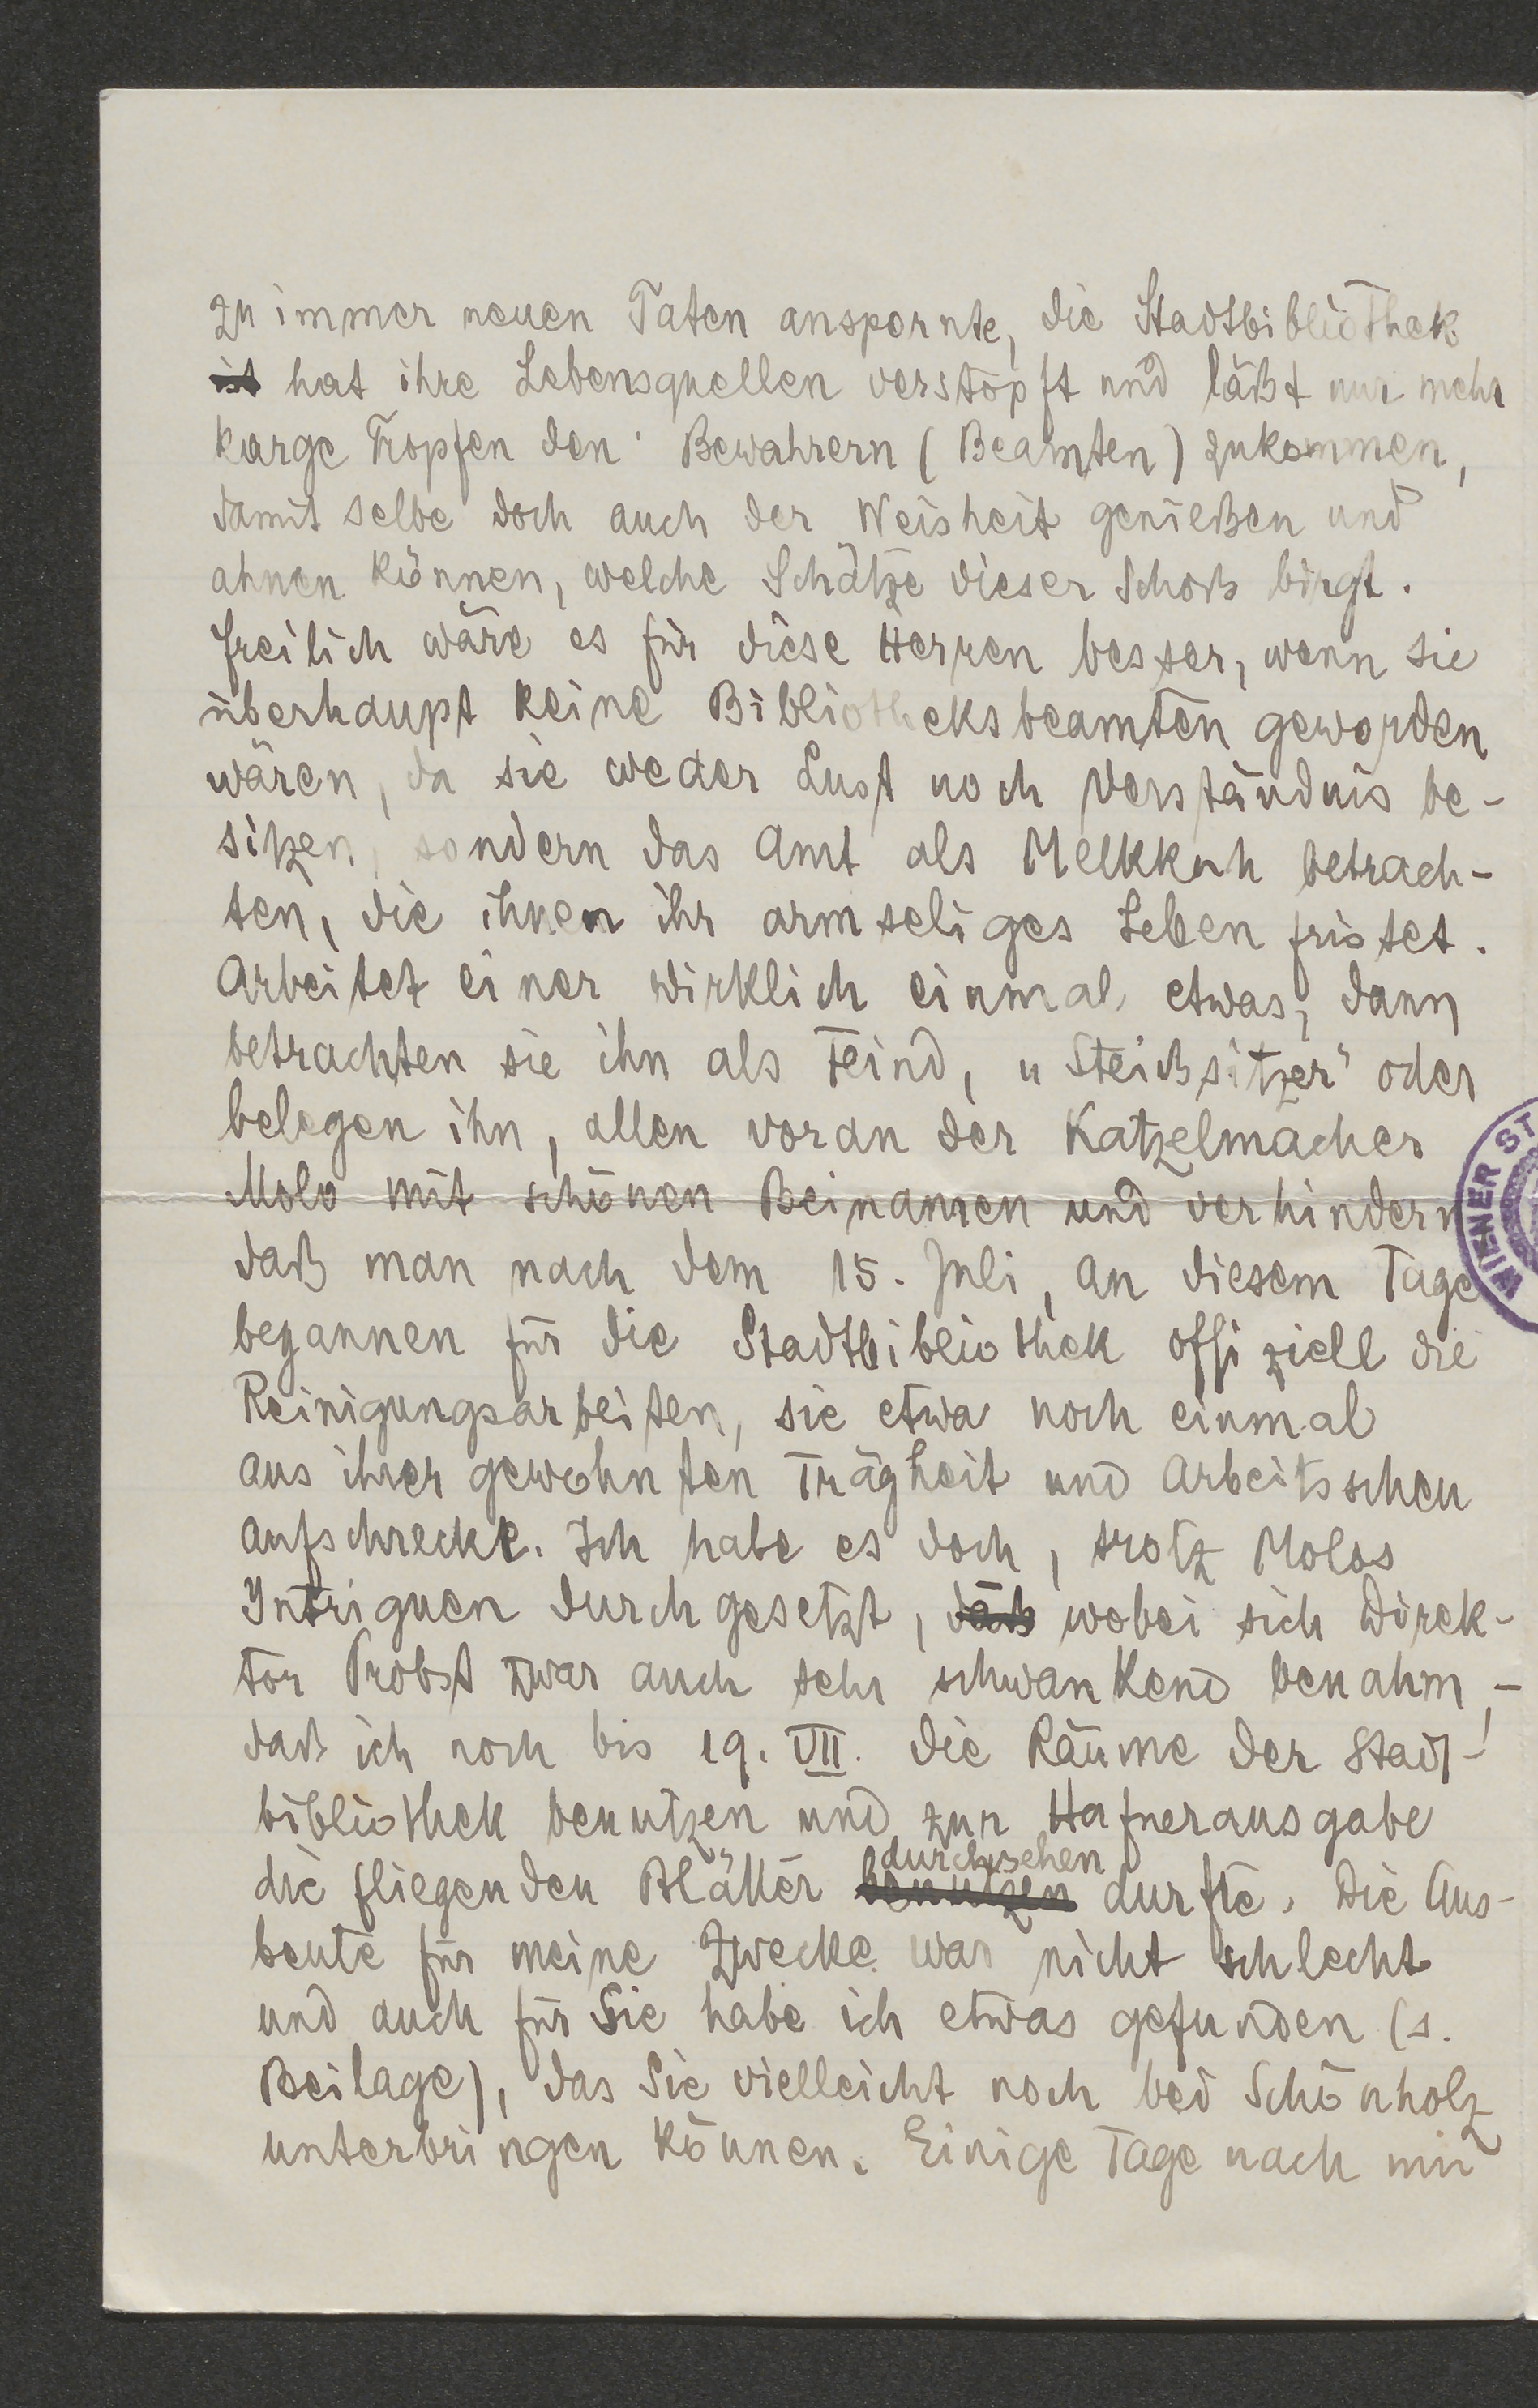 zu immer neuen Taten anspornte, die Stadtbibliothek
ist hat ihre Lebensquellen verstopft und läßt nur mehr
karge Tropfen den Bewahrern (Beamten) zukommen,
damit selbe doch auch der Weisheit genießen und
ahnen können, welche Schätze dieser Schoß birgt.
Freilich wäre es für diese Herren besser, wenn sie
überhaupt keine Bibliotheksbeamten geworden
wären, da sie weder Lust noch Verständnis be-
sitzen, sondern das Amt als Melkkuh betrach-
ten, die ihnen ihr armseliges Leben fristet.
Arbeitet einer wirklich einmal etwas, dann
betrachten sie ihn als Feind, "Steißsitzer" oder
belegen ihn, allen voran der Katzelmacher
Molo mit schönen Beinamen und verhindern
daß man nach dem 15. Juli, an diesem Tage
begannen für die Stadtbibliothek offiziell die
Reinigungsarbeiten, sie etwa noch einmal
aus ihrer gewohnten Trägheit und Arbeitsscheu
aufschrecke. Ich habe es doch, trotz Molos
Intriguen durchgesetzt, daß wobei sich Direk-
tor Probst zwar auch sehr schwankend benahm, -
daß ich noch bis 19. VII. die Räume der Stadt-
bibliothek benutzen und zur Hafnerausgabe
durchsehen
die fliegenden Blätter benutzen durfte. Die Aus-
beute für meine Zwecke war nicht schlecht
und auch für Sie habe ich etwas gefunden (s.
Beilage), das Sie vielleicht noch bei Schönholz
unterbringen können. Einige Tage nach mir
WIENER ST